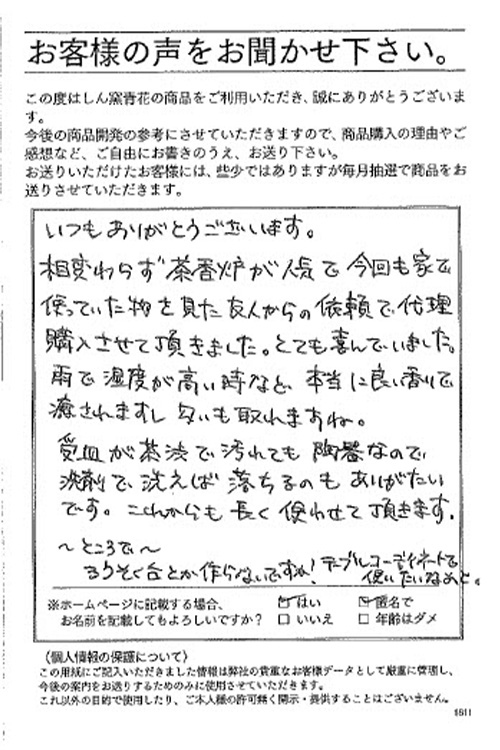 お客様の声をお聞かせ下さい。
この度はしん窯青花の商品をご利用いただき、誠にありがとうございま
す。
今後の商品開発の参考にさせていただきますので、商品購入の理由やご
感想など、ご自由にお書きのうえ、お送り下さい。
お送りいただけたお客様には、些少ではありますが毎月抽選で商品をお
送りさせていただきます。
いつもありがとうございます。
相変わらず茶香炉が人気で今回も家で
使っていた物を見た友人からの依頼で代理
購入させて頂きました。とても喜んでいました。
雨で湿度が高い時など、本当に良い香りで
癒されますし匂いも取れますね。
受皿が茶渋で汚れても陶器なので
洗剤で洗えば落ちるのもありがたい
です。これからも長く使わせて頂きます。
〜ところで〜
ろうそく台とか作らないですか!テーブルコーディネートで
使いたいなあと。
※ホームページに記載する場合、 ☑はい ☑匿名で
お名前を記載してもよろしいですか? □いいえ □年齢はダメ
(個人情報の保護について)
この用紙にご記入いただきました情報は弊社の貴重なお客様データとして厳重に管理し、
今後の案内をお送りするためのみに使用させていただきます。
これ以外の目的で使用したり、ご本人様の許可無く開示・提供することはございません。
1811